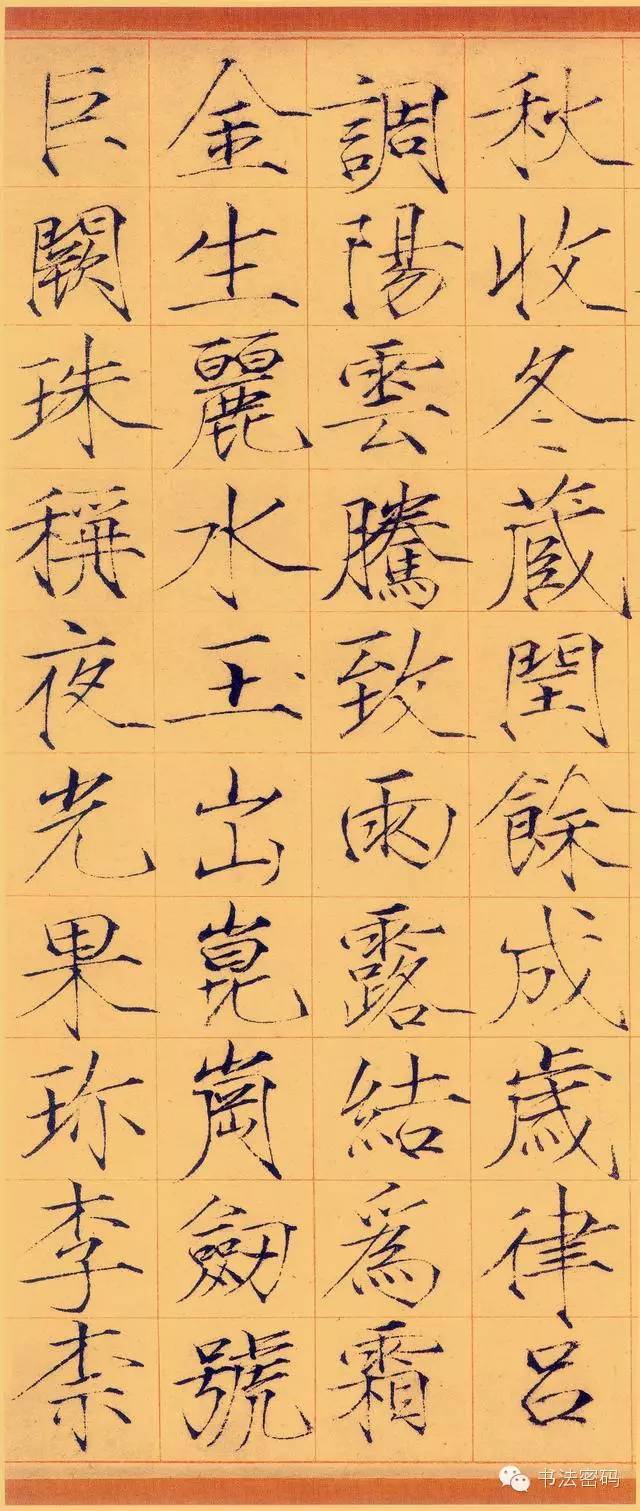 秋收冬蔵閏餘成歲律呂
調陽雲騰致雨露結爲霜
金生麗水玉出崑崗劔號
巨闕珠稱夜光果珎李柰
书法密码